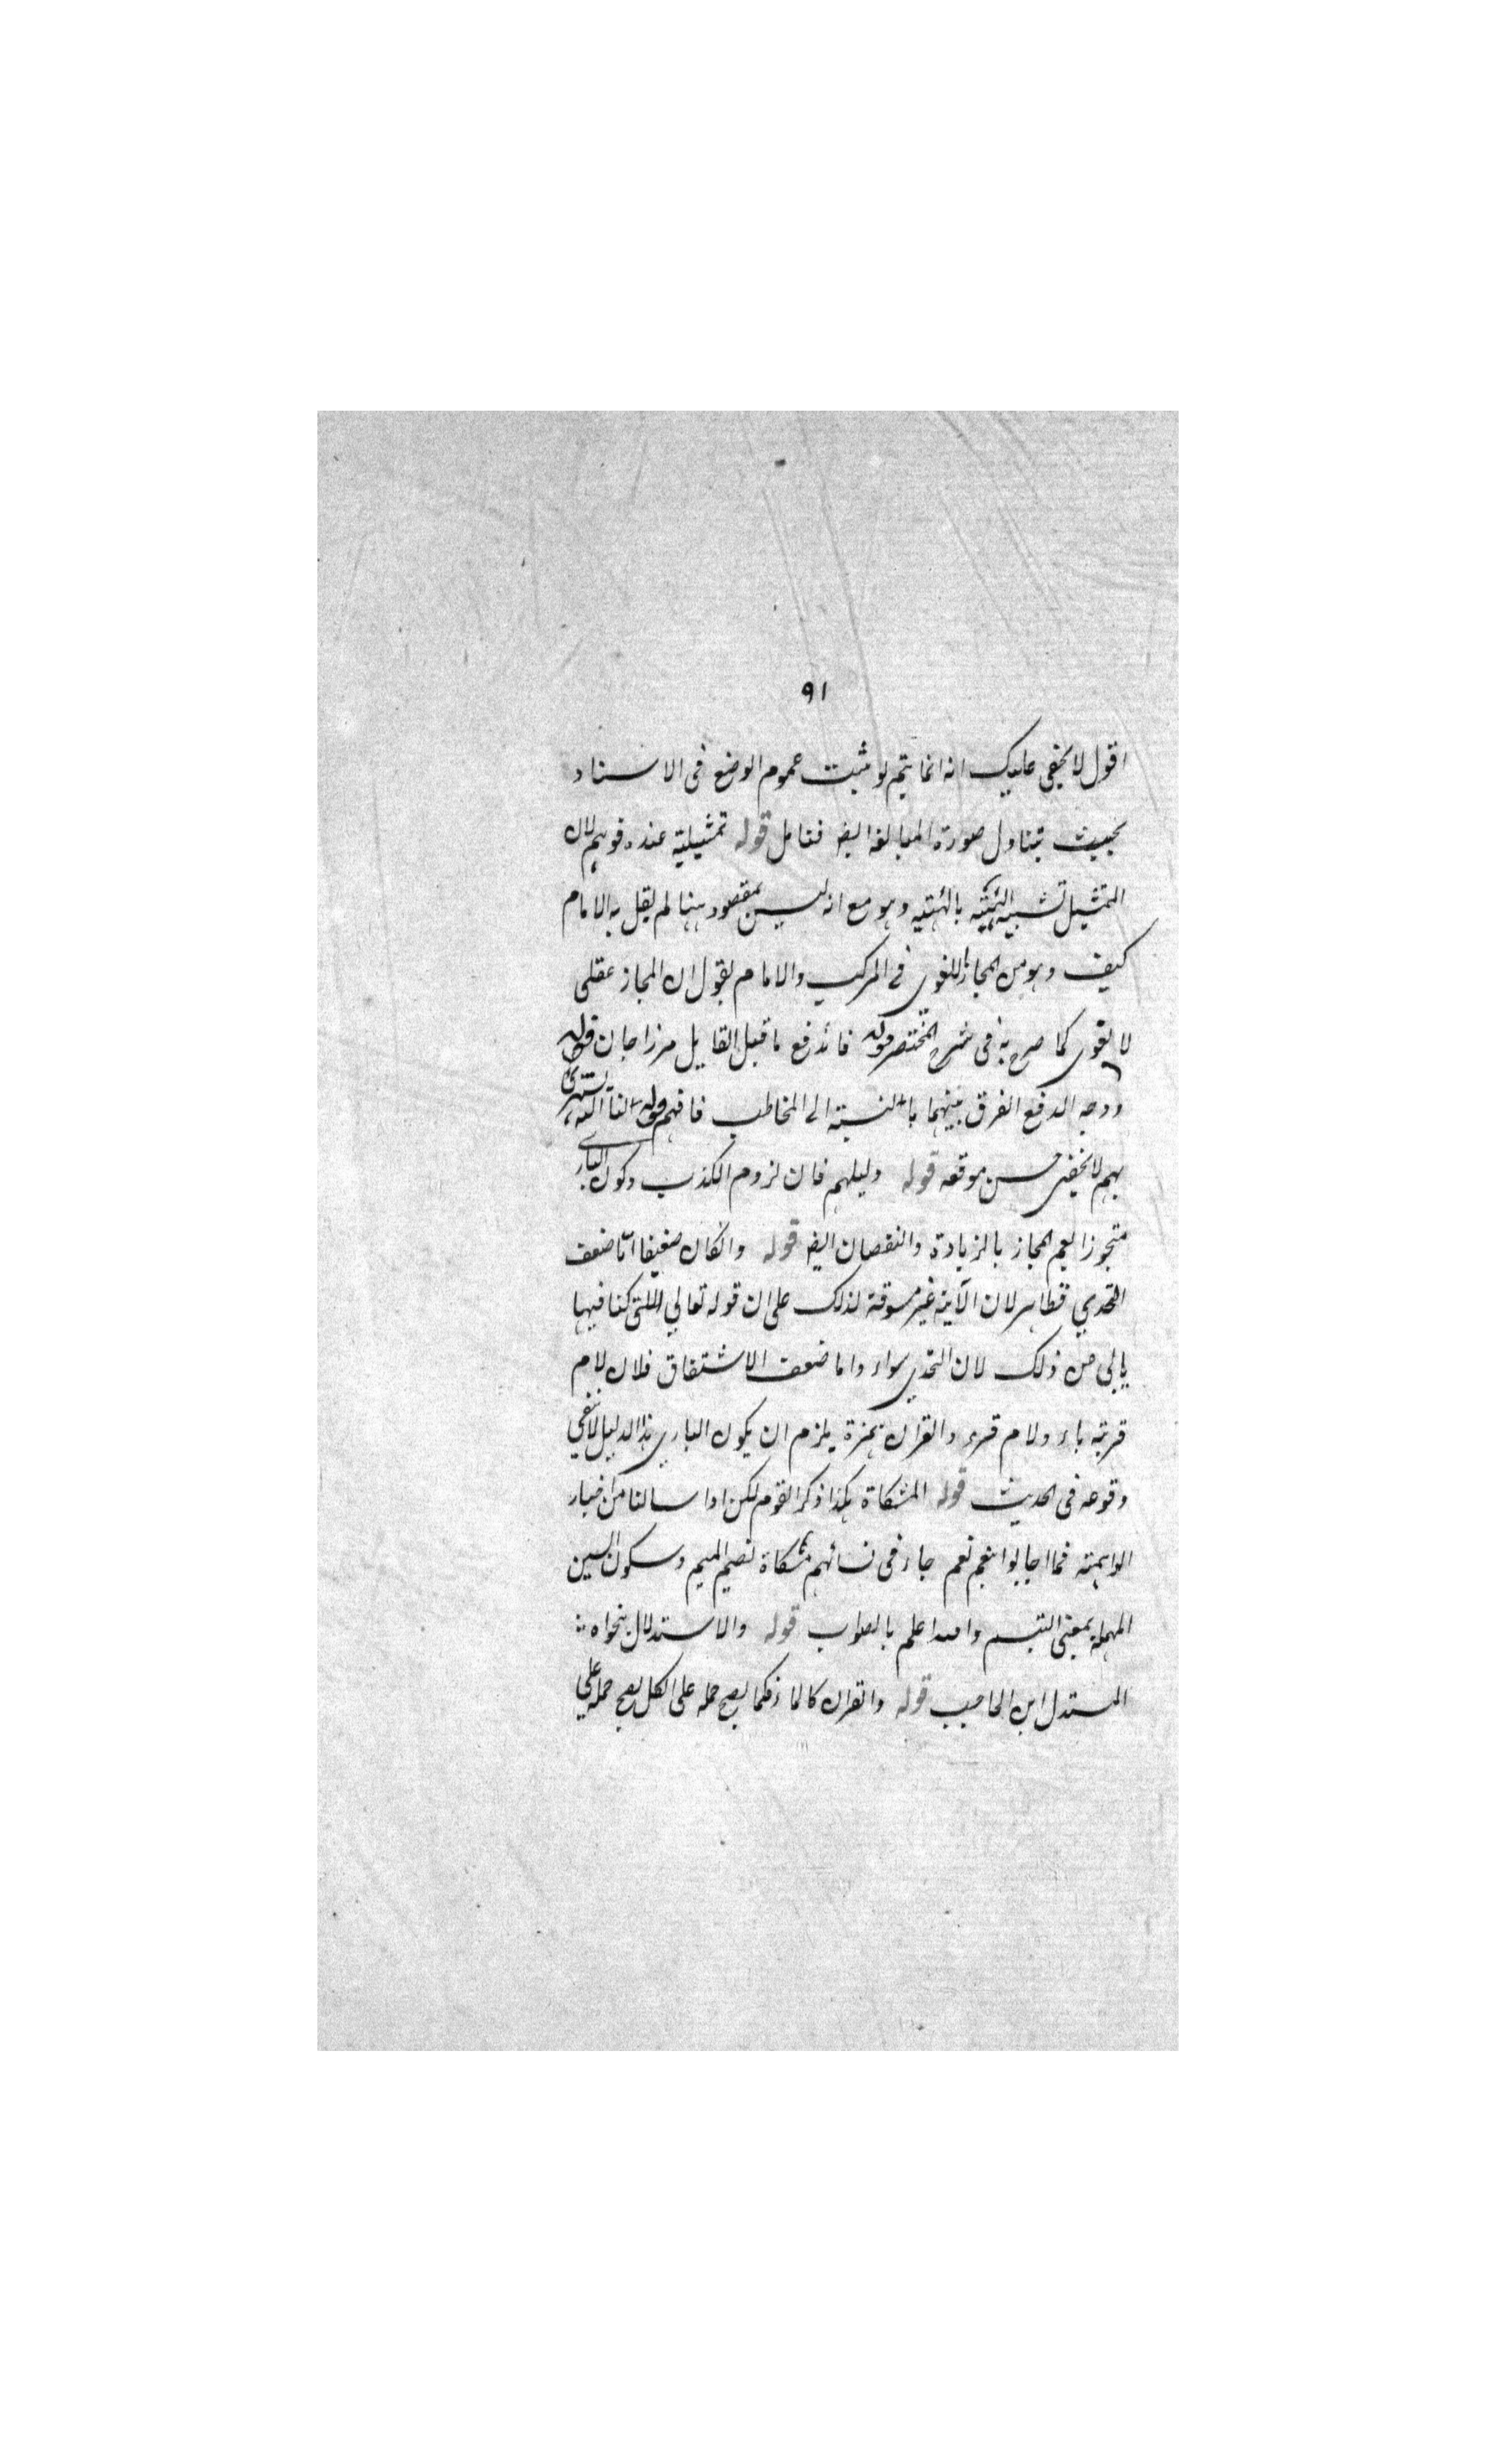 ٩١
اقول لا يخفى عليك انه انما يتم لو ثبت عموم الوضع فى الاسناد
بحيث تتناول صورة المبالغة ايضا فتامل قوله تمثيلية عنده فوهم لان
التمثيل تشبيه الهيئة بالهيئة وهو مع انه ليس بمقصود ههنا لم يقل به الامام
كيف وهو من المجاز اللغوى فى المركب والامام يقول ان المجاز عقلى
لا لغوى كما صرح به فى شرح المختصر قوله فاندفع ما قيل القايل مرزا جان قوله
ووجه الدفع الفرق بينهما بالنسبة الى المخاطب فافهم قوله الله يستهزئ
بهم لا يخفى حسن موقعه قوله دليلهم فان لزوم الكذب وكون البارى
متجوزا يعم المجاز بالزيادة والنقصان ايضا قوله وان كان ضعيفا اما ضعف
التحدي فظاهر لان الآية غير مسوقة لذلك على ان قوله تعالي التى كنا فيها
يابى من ذلك لان التحدي سواء واما ضعف الاشتقاق فلان لام
قرية ياء ولام قرء والقران همزة يلزم ان يكون البارى هذا الدليل لا ينفي
وقوعه فى الحديث قوله المشكاة هكذا ذكر القوم لكن اذا سالنا من اخيار
الواهمة فما اجابوا بنعم نعم جاء فى لسانهم مشكاة بضم الميم وسكون السين
المهملة بمعنى التبسم والله اعلم بالصواب قوله والاستدلال بنحو اه
المستدل ابن الحاجب قوله والقران كالماء فكما يصح حمله على الكل يصح حمله علي